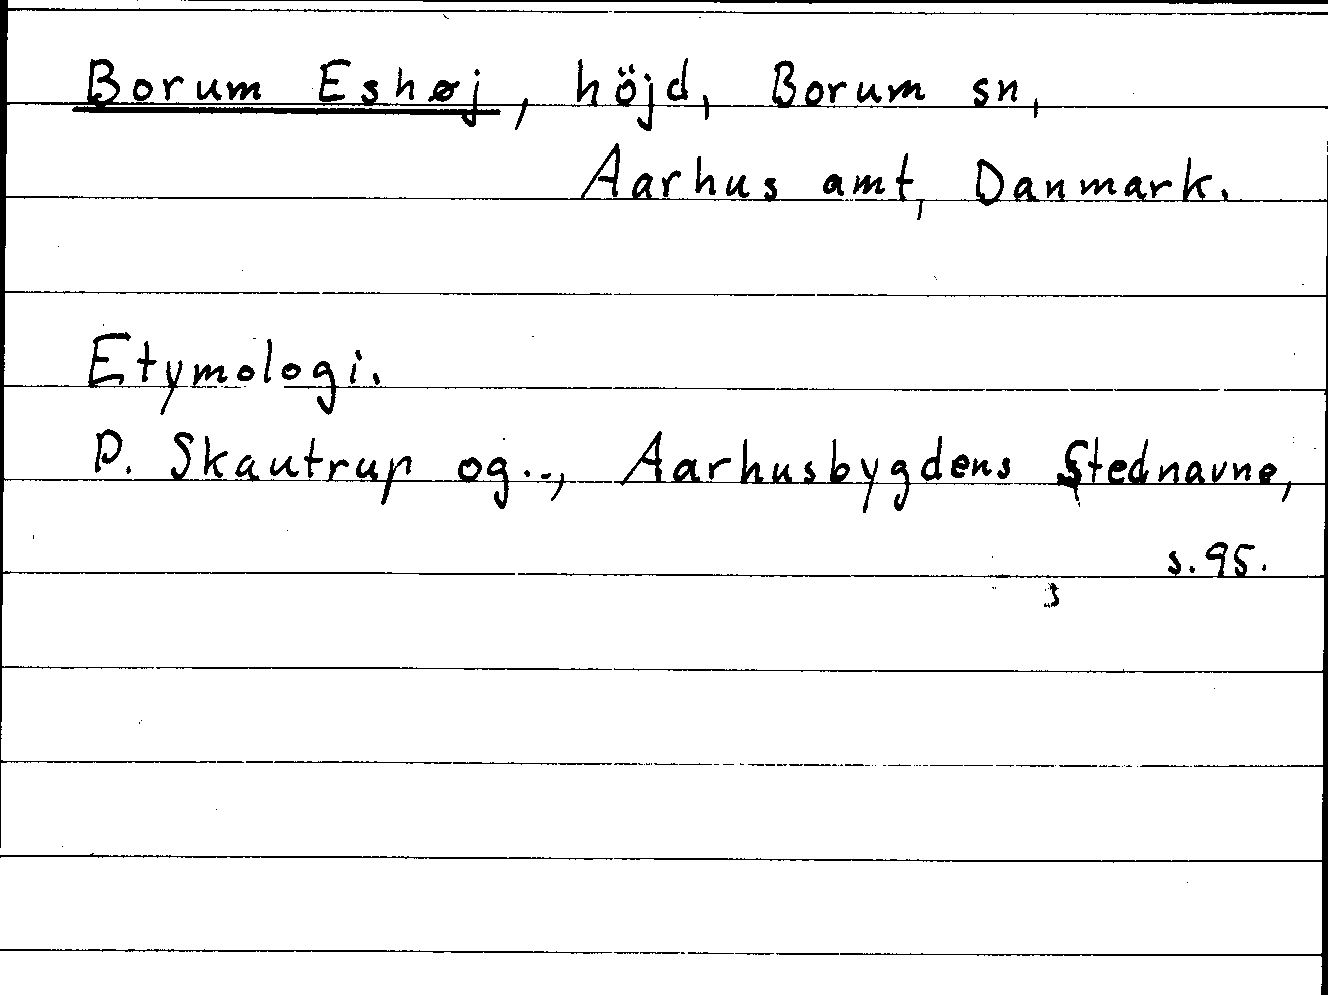 Borum Eshøj, höjd, Borum sn,
Aarhus amt, Danmark.
Etymologi.
P. Skautrup og..., Aarhusbygdens Stednavne,
s. 95.